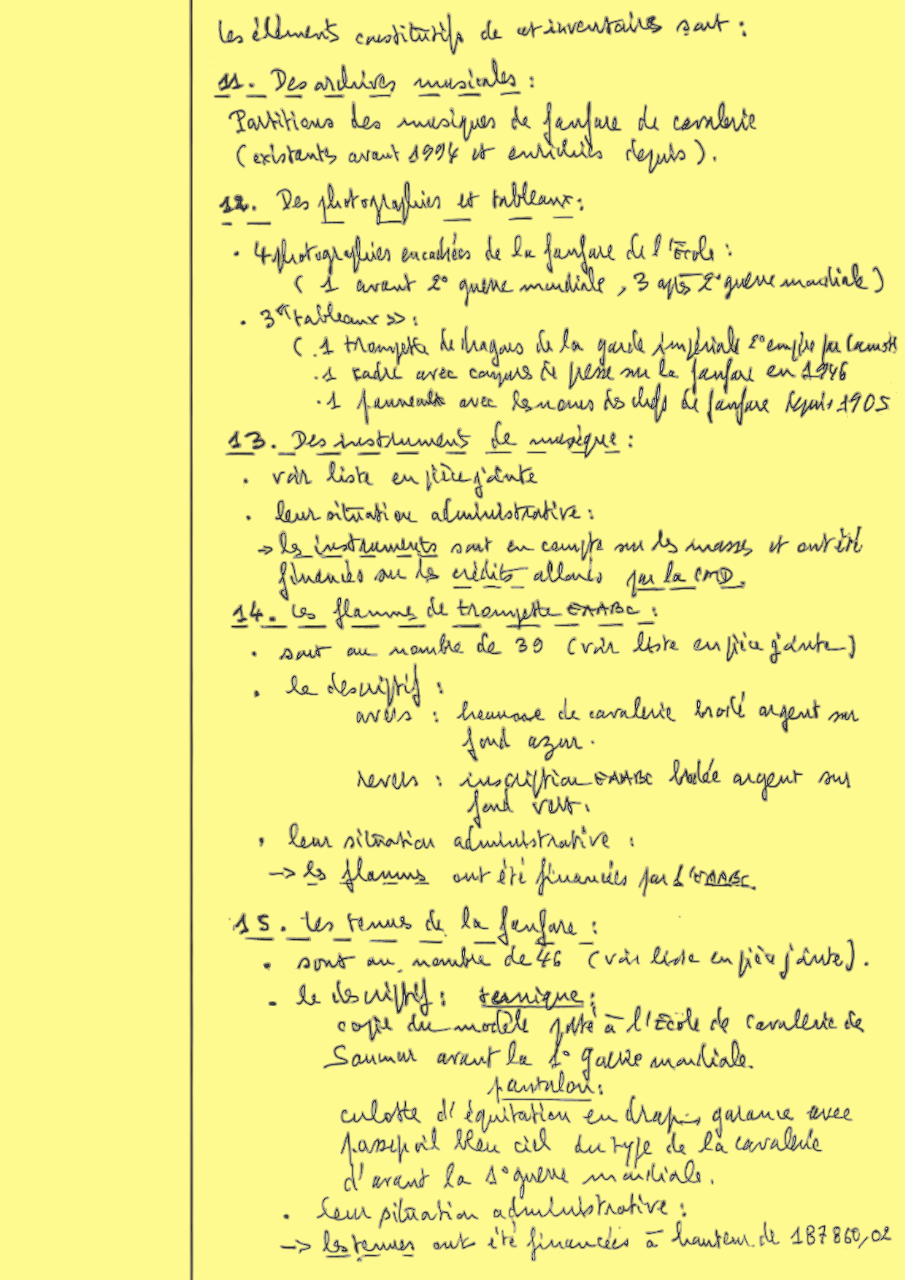 Les éléments constitutifs de cet inventaires sont :
11. Des archives musicales :
Partitions des musiques de fanfare de cavalerie
(existantes avant 1994 et enrichies depuis).
12. Des photographies et tableaux :
• 4 photographies encadrées de la fanfare de l'École :
( 1 avant 2° guerre mondiale, 3 après 2° guerre mondiale)
• 3 "tableaux" :
( . 1 trompette de dragons de la garde impériale 2° empire par
. 1 cadre avec coupures de presse sur la fanfare en 1946
. 1 panneau avec les noms des chefs de fanfare depuis 1905
13. Des instruments de musique :
• voir liste en pièce jointe
• leur situation administrative :
→ les instruments sont en compte sur les masses et ont été
financés sur les crédits alloués par la CMD.
14. Les flammes de trompette EAABC :
• sont au nombre de 39 (voir liste en pièce jointe)
• le descriptif :
avers : heaume de cavalerie brodé argent sur
fond azur.
revers : inscription EAABC brodée argent sur
fond vert.
• leur situation administrative :
→ les flammes ont été financées par l'EAABC.
15. Les tenues de la fanfare :
• sont au nombre de 46 (voir liste en pièce jointe).
• le descriptif : tunique :
copie du modèle porté à l'École de cavalerie de
Saumur avant la 1° guerre mondiale.
pantalon :
culotte d'équitation en drap garance avec
passepoil bleu ciel du type de la cavalerie
d'avant la 1° guerre mondiale.
• leur situation administrative :
→ les tenues ont été financées à hauteur de 187 860,02